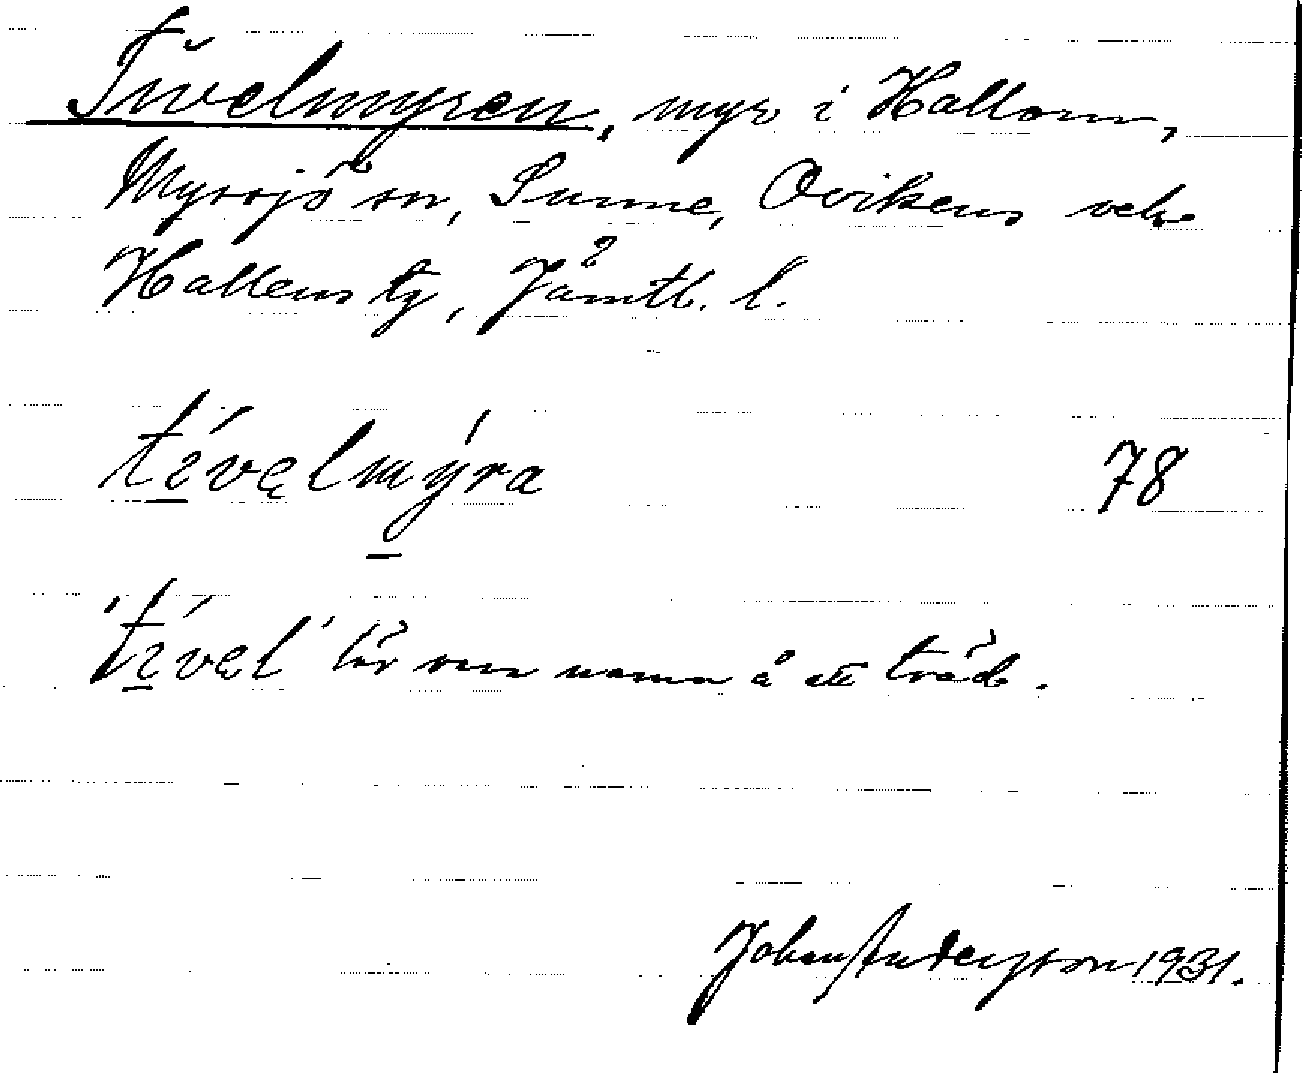 Tivelmyren, myr i Hallom,
Myssjö sn, Sunne, Ovikens och
Hallens tg, Jämtl. l.
tívęlmýra 78
'tívęl' lär vara namn å ett träd.
Johan Andersson 1931.